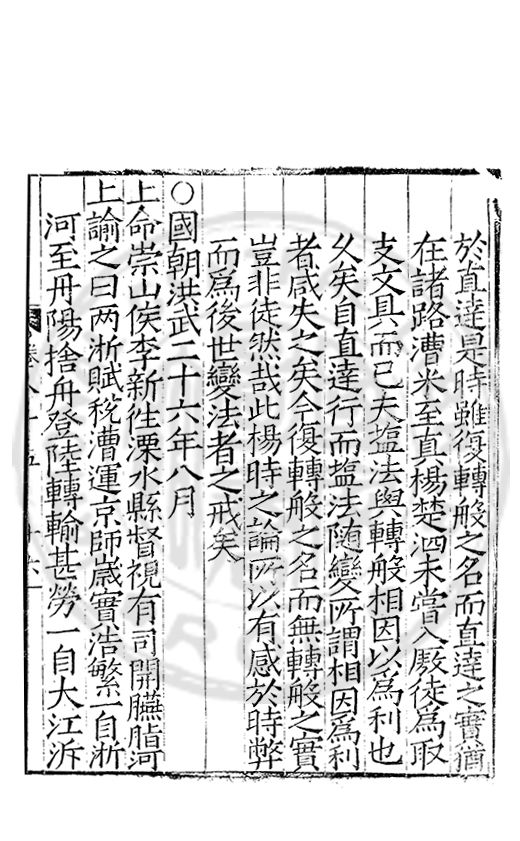 於直達是時雖復轉般之名而直達之實猶
在諸路漕米至真楊楚泗未嘗入廒徒為取
支文具而已夫塩法與轉般相因以為利也
乆矣自直達行而塩法随變所謂相因為利
者咸失之矣今復轉般之名而無轉般之實
豈非徒然哉此楊時之論所以有感於時弊
而為後世變法者之戒矣
○國朝洪武二十六年八月
上命崇山侯李新徃溧水縣督視有司開臙脂河
上諭之曰两浙賦稅漕運京師歲實浩繁一自浙
河至丹陽捨舟登陸轉輸甚勞一自大江泝
卷八十五 十六